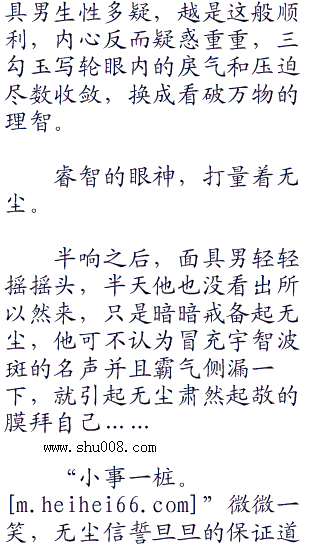 具男生性多疑，越是这般顺
利，内心反而疑惑重重，三
勾玉写轮眼内的戾气和压迫
尽数收敛，换成看破万物的
理智。
睿智的眼神，打量着无
尘。
半响之后，面具男轻轻
摇摇头，半天他也没看出所
以然来，只是暗暗戒备起无
尘，他可不认为冒充宇智波
斑的名声并且霸气侧漏一
下，就引起无尘肃然起敬的
膜拜自己……
www.shu008.com
“小事一桩。
[m.heihei66.com]”微微一
笑，无尘信誓旦旦的保证道